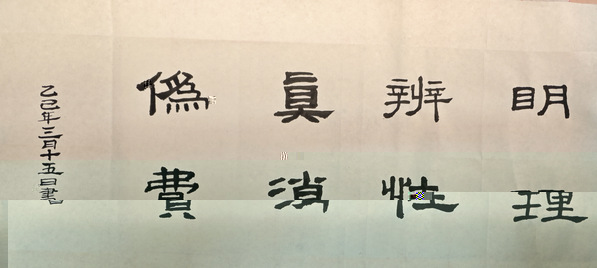 眀辨真僞
理性消費
乙巳年三月十五日書